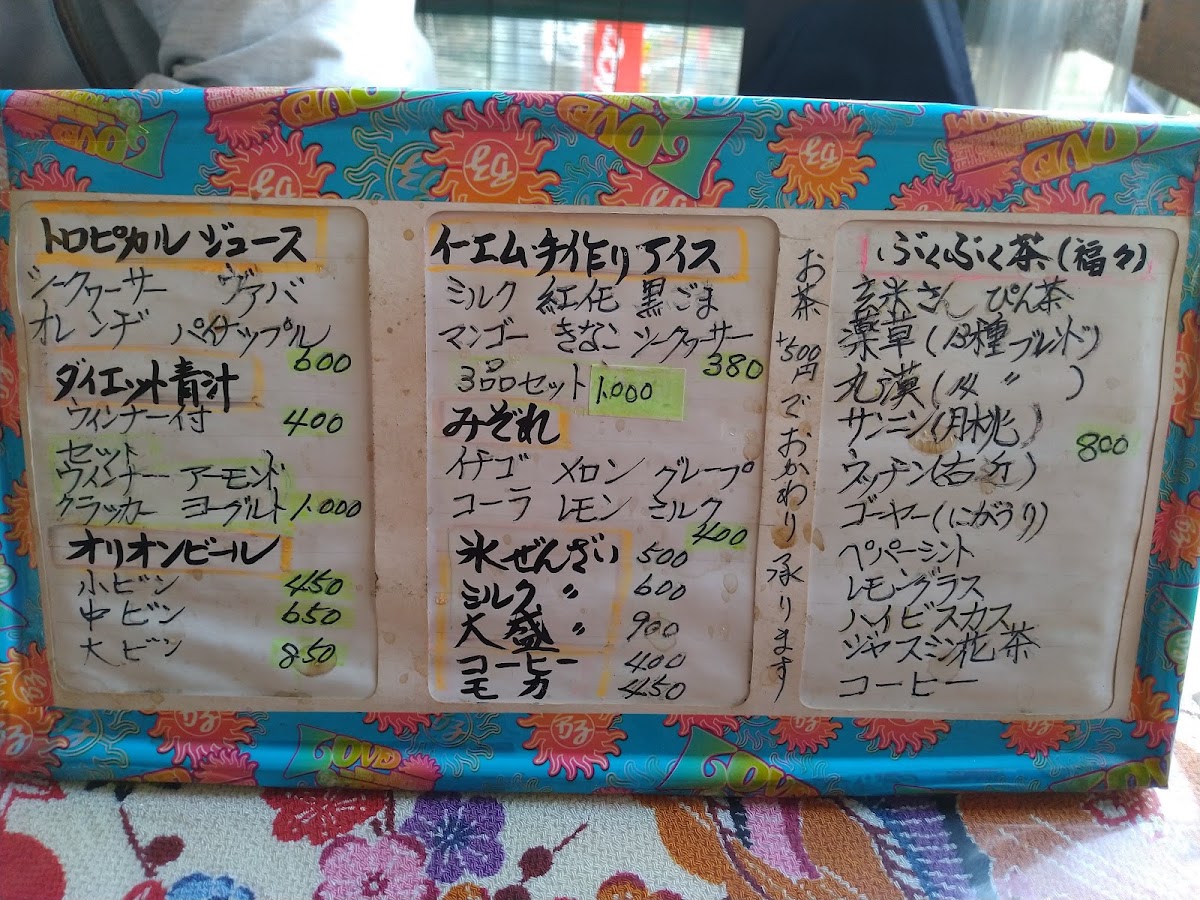 トロピカルジュース
シークワーサー ヴァバ
オレンヂ パイナップル
600
ダイエット青汁
ウィンナー付 400
セット
ウィンナー アーモンド
クラッカー ヨーグルト 1.000
オリオンビール
小ビン 450
中ビン 650
大ビン 850
イーエム手作りアイス
ミルク 紅イモ 黒ごま
マンゴー きなこ シークヮーサー
380
3品セット 1.000
みぞれ
イチゴ メロン グレープ
コーラ レモン ミルク
400
氷ぜんざい 500
ミルク 〃 600
大盛 〃 900
コーヒー 400
モカ 450
お茶+500円でおかわり承ります
ぶくぶく茶(福々)
玄米さん ぴん茶
薬草(13種ブレンド)
丸漢( 〃 )
サンニン(月桃)
800
ウッチン(右近)
ゴーヤー(にがうり)
ペパーミント
レモングラス
ハイビスカス
ジャスミン花茶
コーヒー
LOVE
LOVE
LOVE